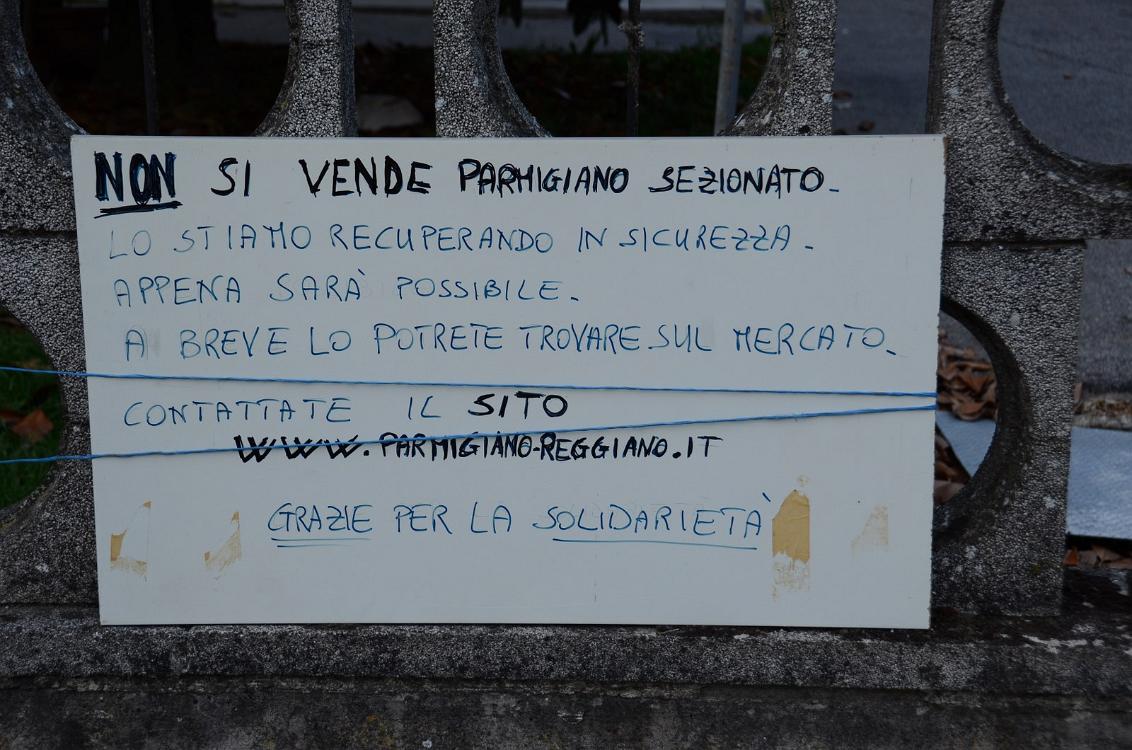 NON SI VENDE PARMIGIANO SEZIONATO.
LO STIAMO RECUPERANDO IN SICUREZZA.
APPENA SARÀ POSSIBILE.
A BREVE LO POTRETE TROVARE SUL MERCATO.
CONTATTATE IL SITO
WWW.PARMIGIANO-REGGIANO.IT
GRAZIE PER LA SOLIDARIETÀ